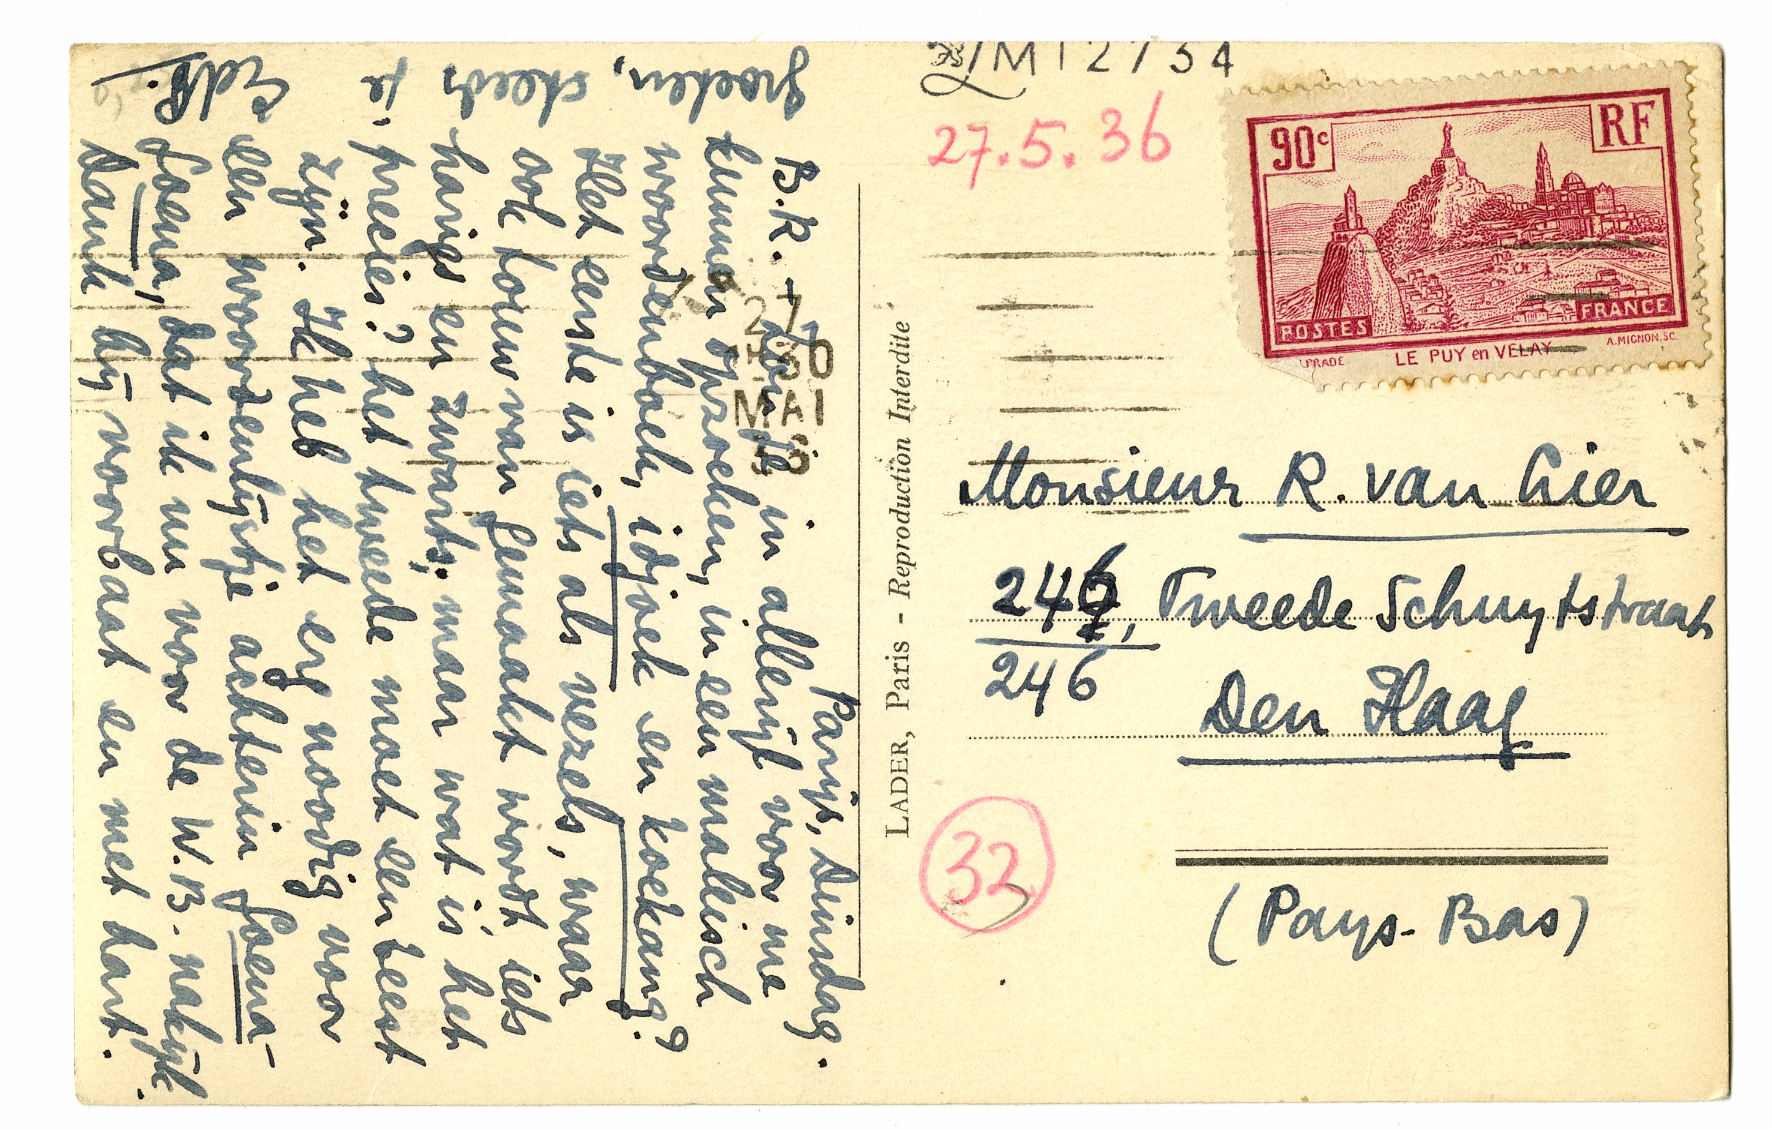 Parijs, Dinsdag.
B.R. - Zou je in allerijl voor me
kunnen opzoeken, in een maleisch
woordenboek, idjoek en koekang?
Het eerste is iets als vezels, waar
ook touw van gemaakt wordt, iets
harigs en zwarts; maar wat is het
precies? het tweede moet een beest
zijn. Ik heb het erg noodig voor
een woordenlijstje achterin Goena-
Goena, dat ik nu voor de W.B. nakijk.
Dank bij voorbaat en met hart.
groeten, steeds je
EdP.
LADER, Paris - Reproduction Interdite
27
H30
MAI
36
27.5.36
90c
RF
POSTES
FRANCE
LE PUY en VELAY
A.MIGNON.SC.
Monsieur R. van Lier
246, Tweede Schuytstraat
246
Den Haag
(Pays-Bas)
32